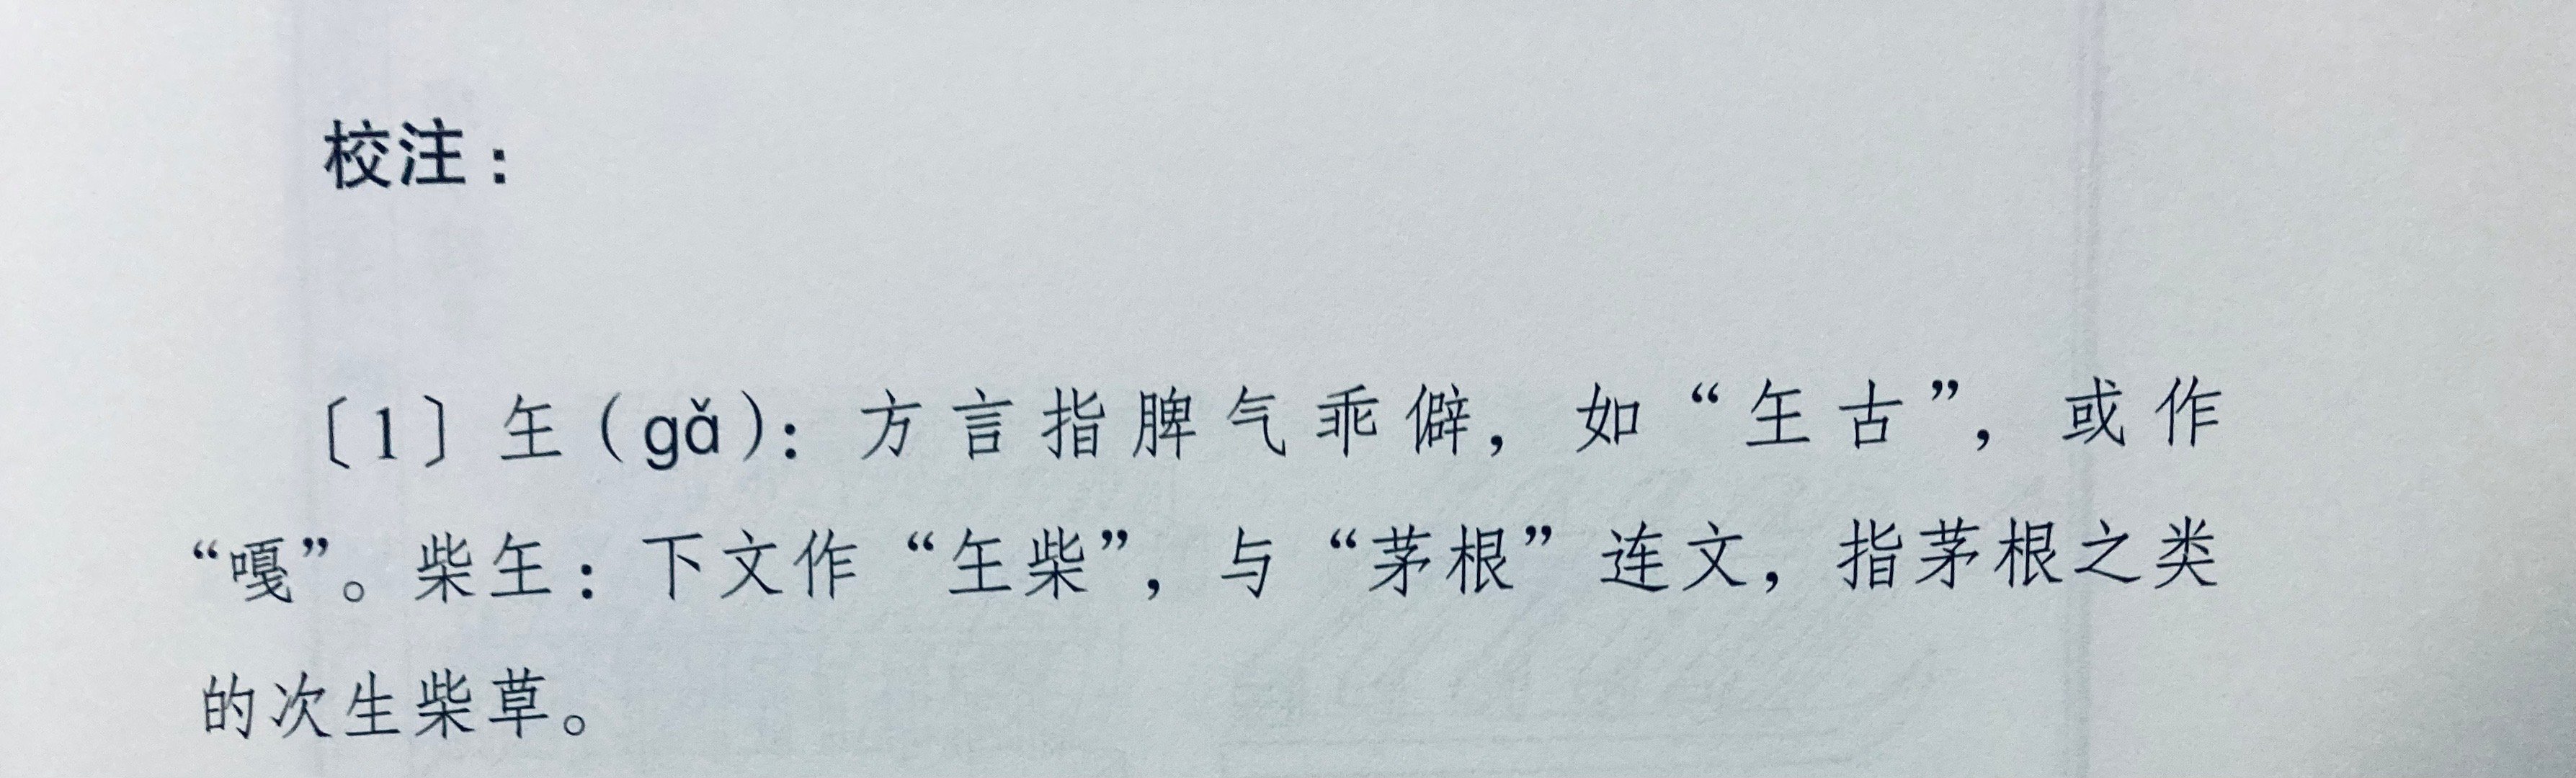 校注：
〔1〕玍（gǎ）：方言指脾气乖僻，如“玍古”，或作
“嘎”。柴玍：下文作“玍柴”，与“茅根”连文，指茅根之类
的次生柴草。